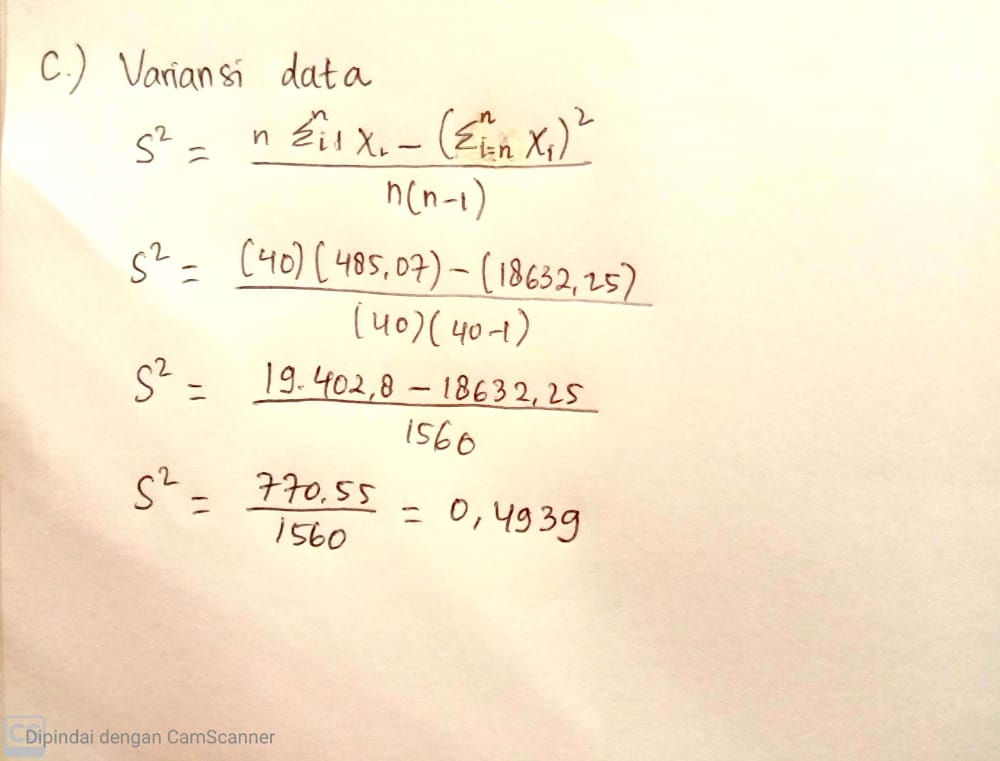 C.) Variansi data
S² = n Σⁿi=1 Xi – (Σⁿi=n Xi)²
n(n-1)
S² = (40)(485,07) – (18632,25)
(40)(40-1)
S² = 19.402,8 – 18632,25
1560
S² = 770,55 = 0,4939
1560
CS Dipindai dengan CamScanner